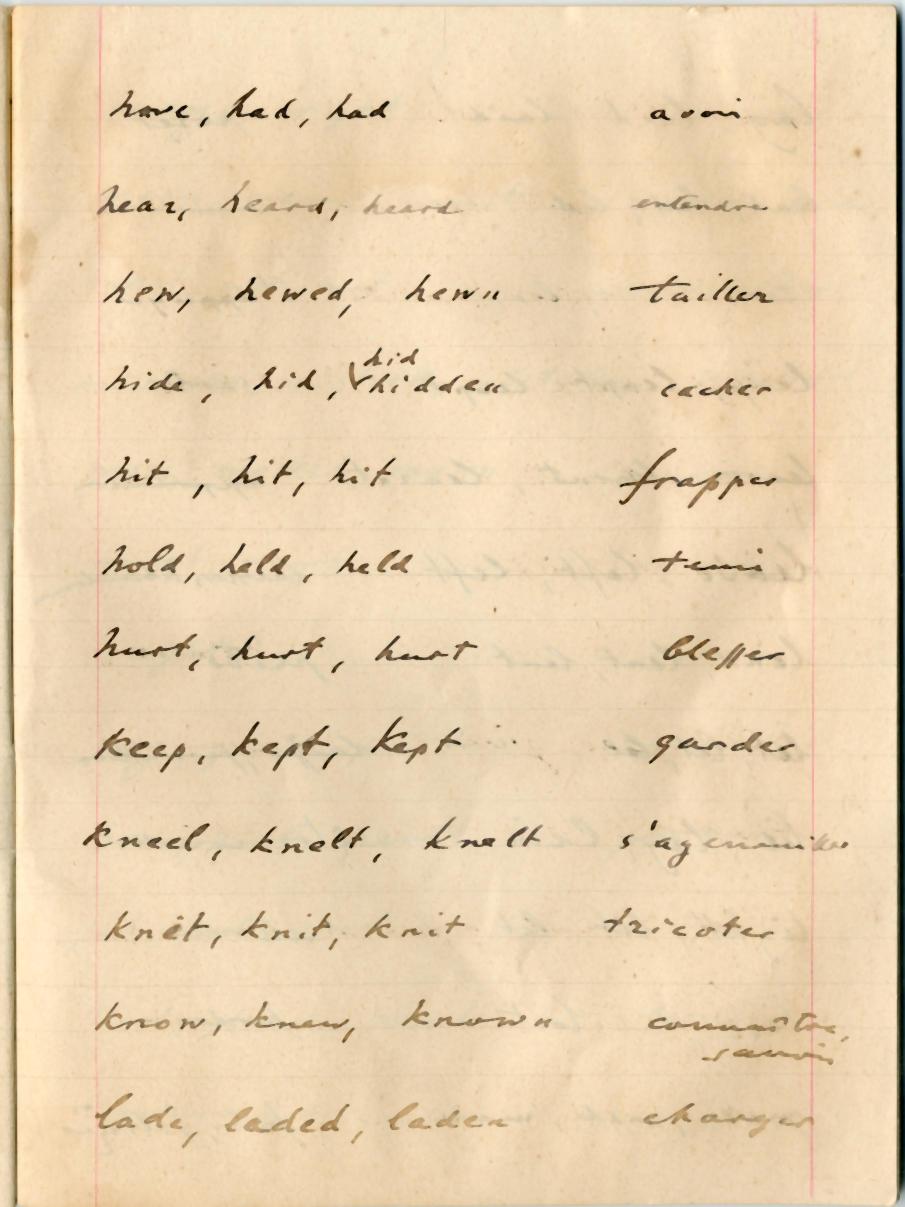 have, had, had avoir
hear, heard, heard entendre
hew, hewed, hewn tailler
hid
hide, hid, hidden cacher
hit, hit, hit frapper
hold, held, held tenir
hurt, hurt, hurt blesser
keep, kept, kept garder
kneel, knelt, knelt s'agenouiller
knit, knit, knit tricoter
know, knew, known connaître,
savoir
lade, laded, laden charger